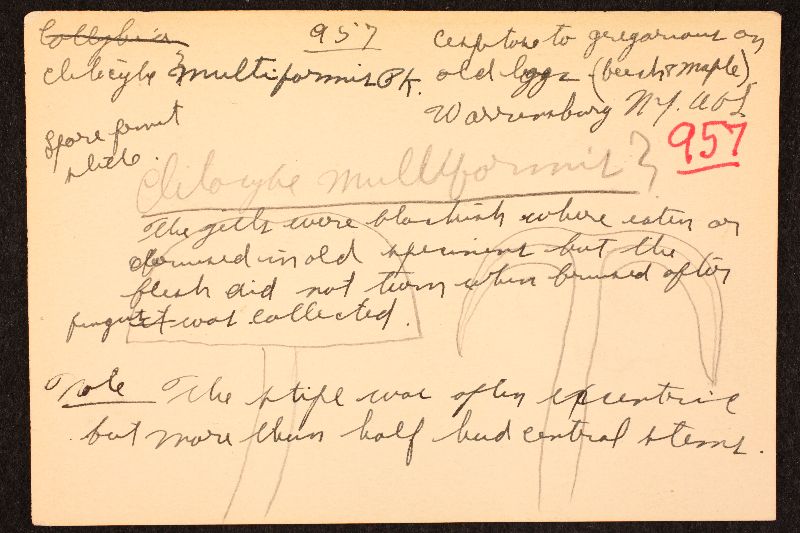 Collybia
957
Clitocybe ? multiformis Pk.
Cespitose to gregarious on
old loggs (beech & maple)
Warrensburg N.Y.
957
Spore print
slide.
Clitocybe multiformis ?
The gills were blackish where eaten or
bruised in old specimens but the
flesh did not turn when bruised after
fungus it was collected.
Note The stipe was often excentric
but more than half had central stems.